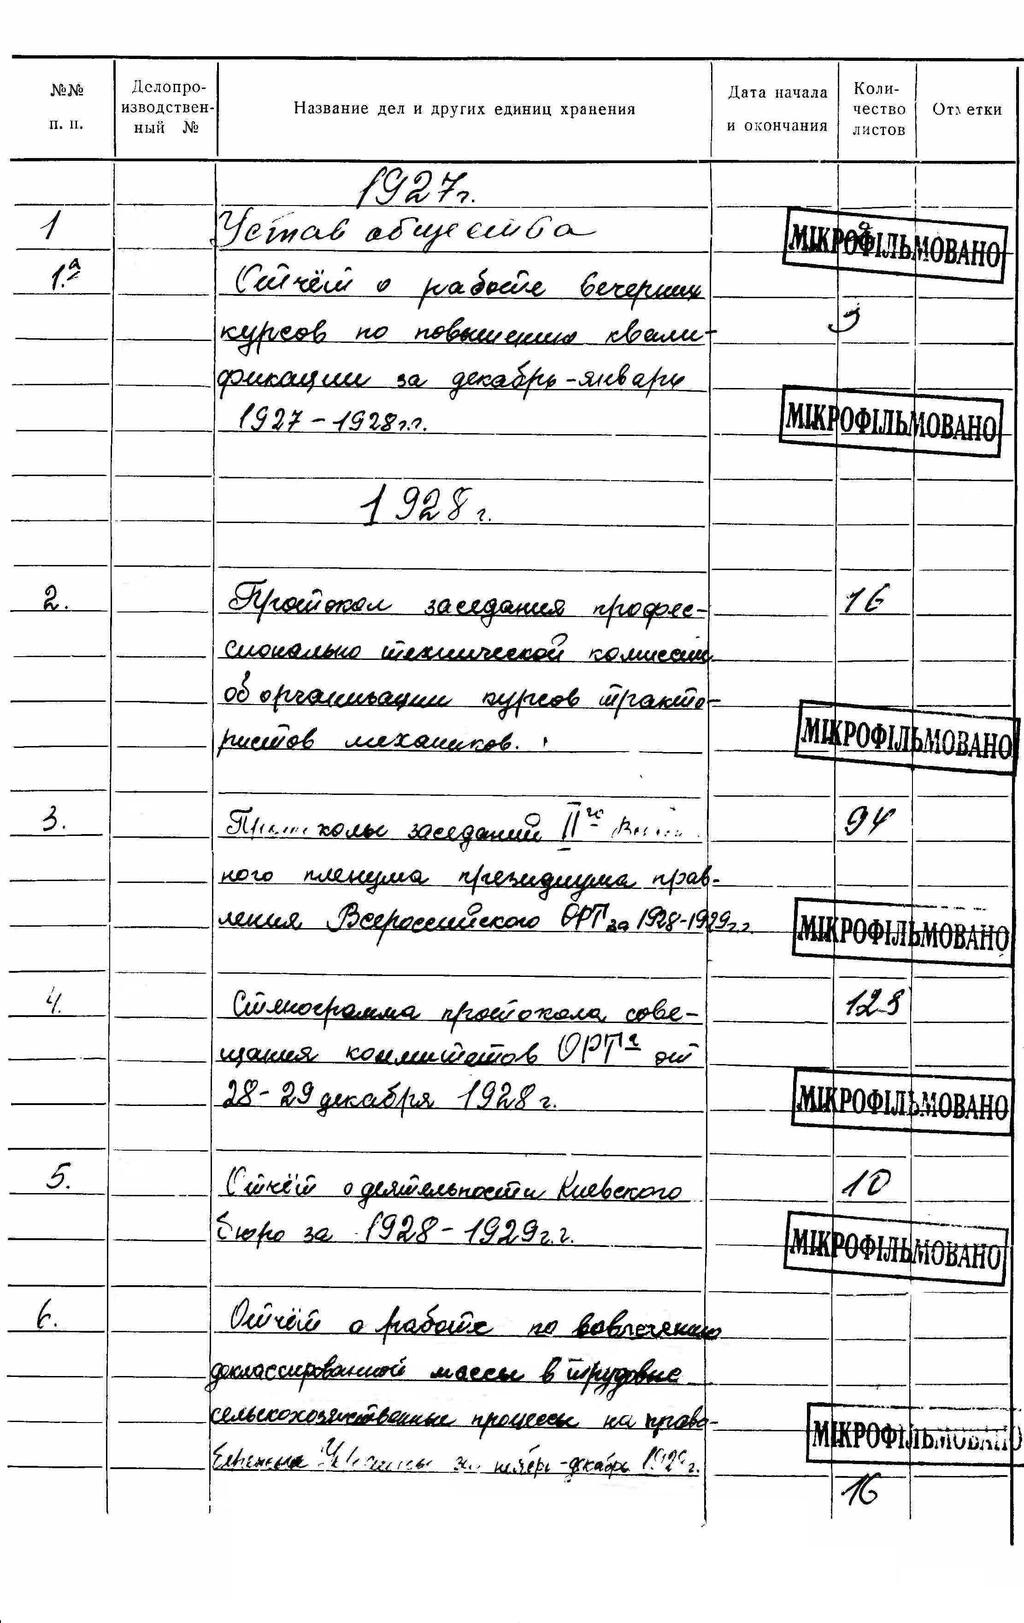 №№ п. п.
Делопро-
изводствен-
ный №
Название дел и других единиц хранения
Дата начала
и окончания
Коли-
чество
листов
Отметки
1927г.
1 Устав общества
МІКРОФІЛЬМОВАНО
1.а Отчёт о работе вечерних
курсов по повышению квали- 9
фикации за декабрь-январь
1927-1928г.г. МІКРОФІЛЬМОВАНО
1928г.
2. Протокол заседания профес- 16
сионально технической комиссии
об организации курсов тракто-
ристов механиков. МІКРОФІЛЬМОВАНО
3. Протоколы заседаний IIго 94
ного пленума президиума прав-
ления Всероссийского ОРТ за 1928-1929г.г. МІКРОФІЛЬМОВАНО
4. Стенограмма протокола сове- 123
щания коммитетов ОРТа от
28-29 декабря 1928г. МІКРОФІЛЬМОВАНО
5. Отчёт о деятельности Киевского 10
бюро за 1928-1929г.г. МІКРОФІЛЬМОВАНО
6. Отчёт о работе по вовлечению
деклассированной массы в трудовые
сельскохозяйственные процессы на право-
МІКРОФІЛЬМОВАНО
бережья Украины за ноябрь-декабрь г.
16